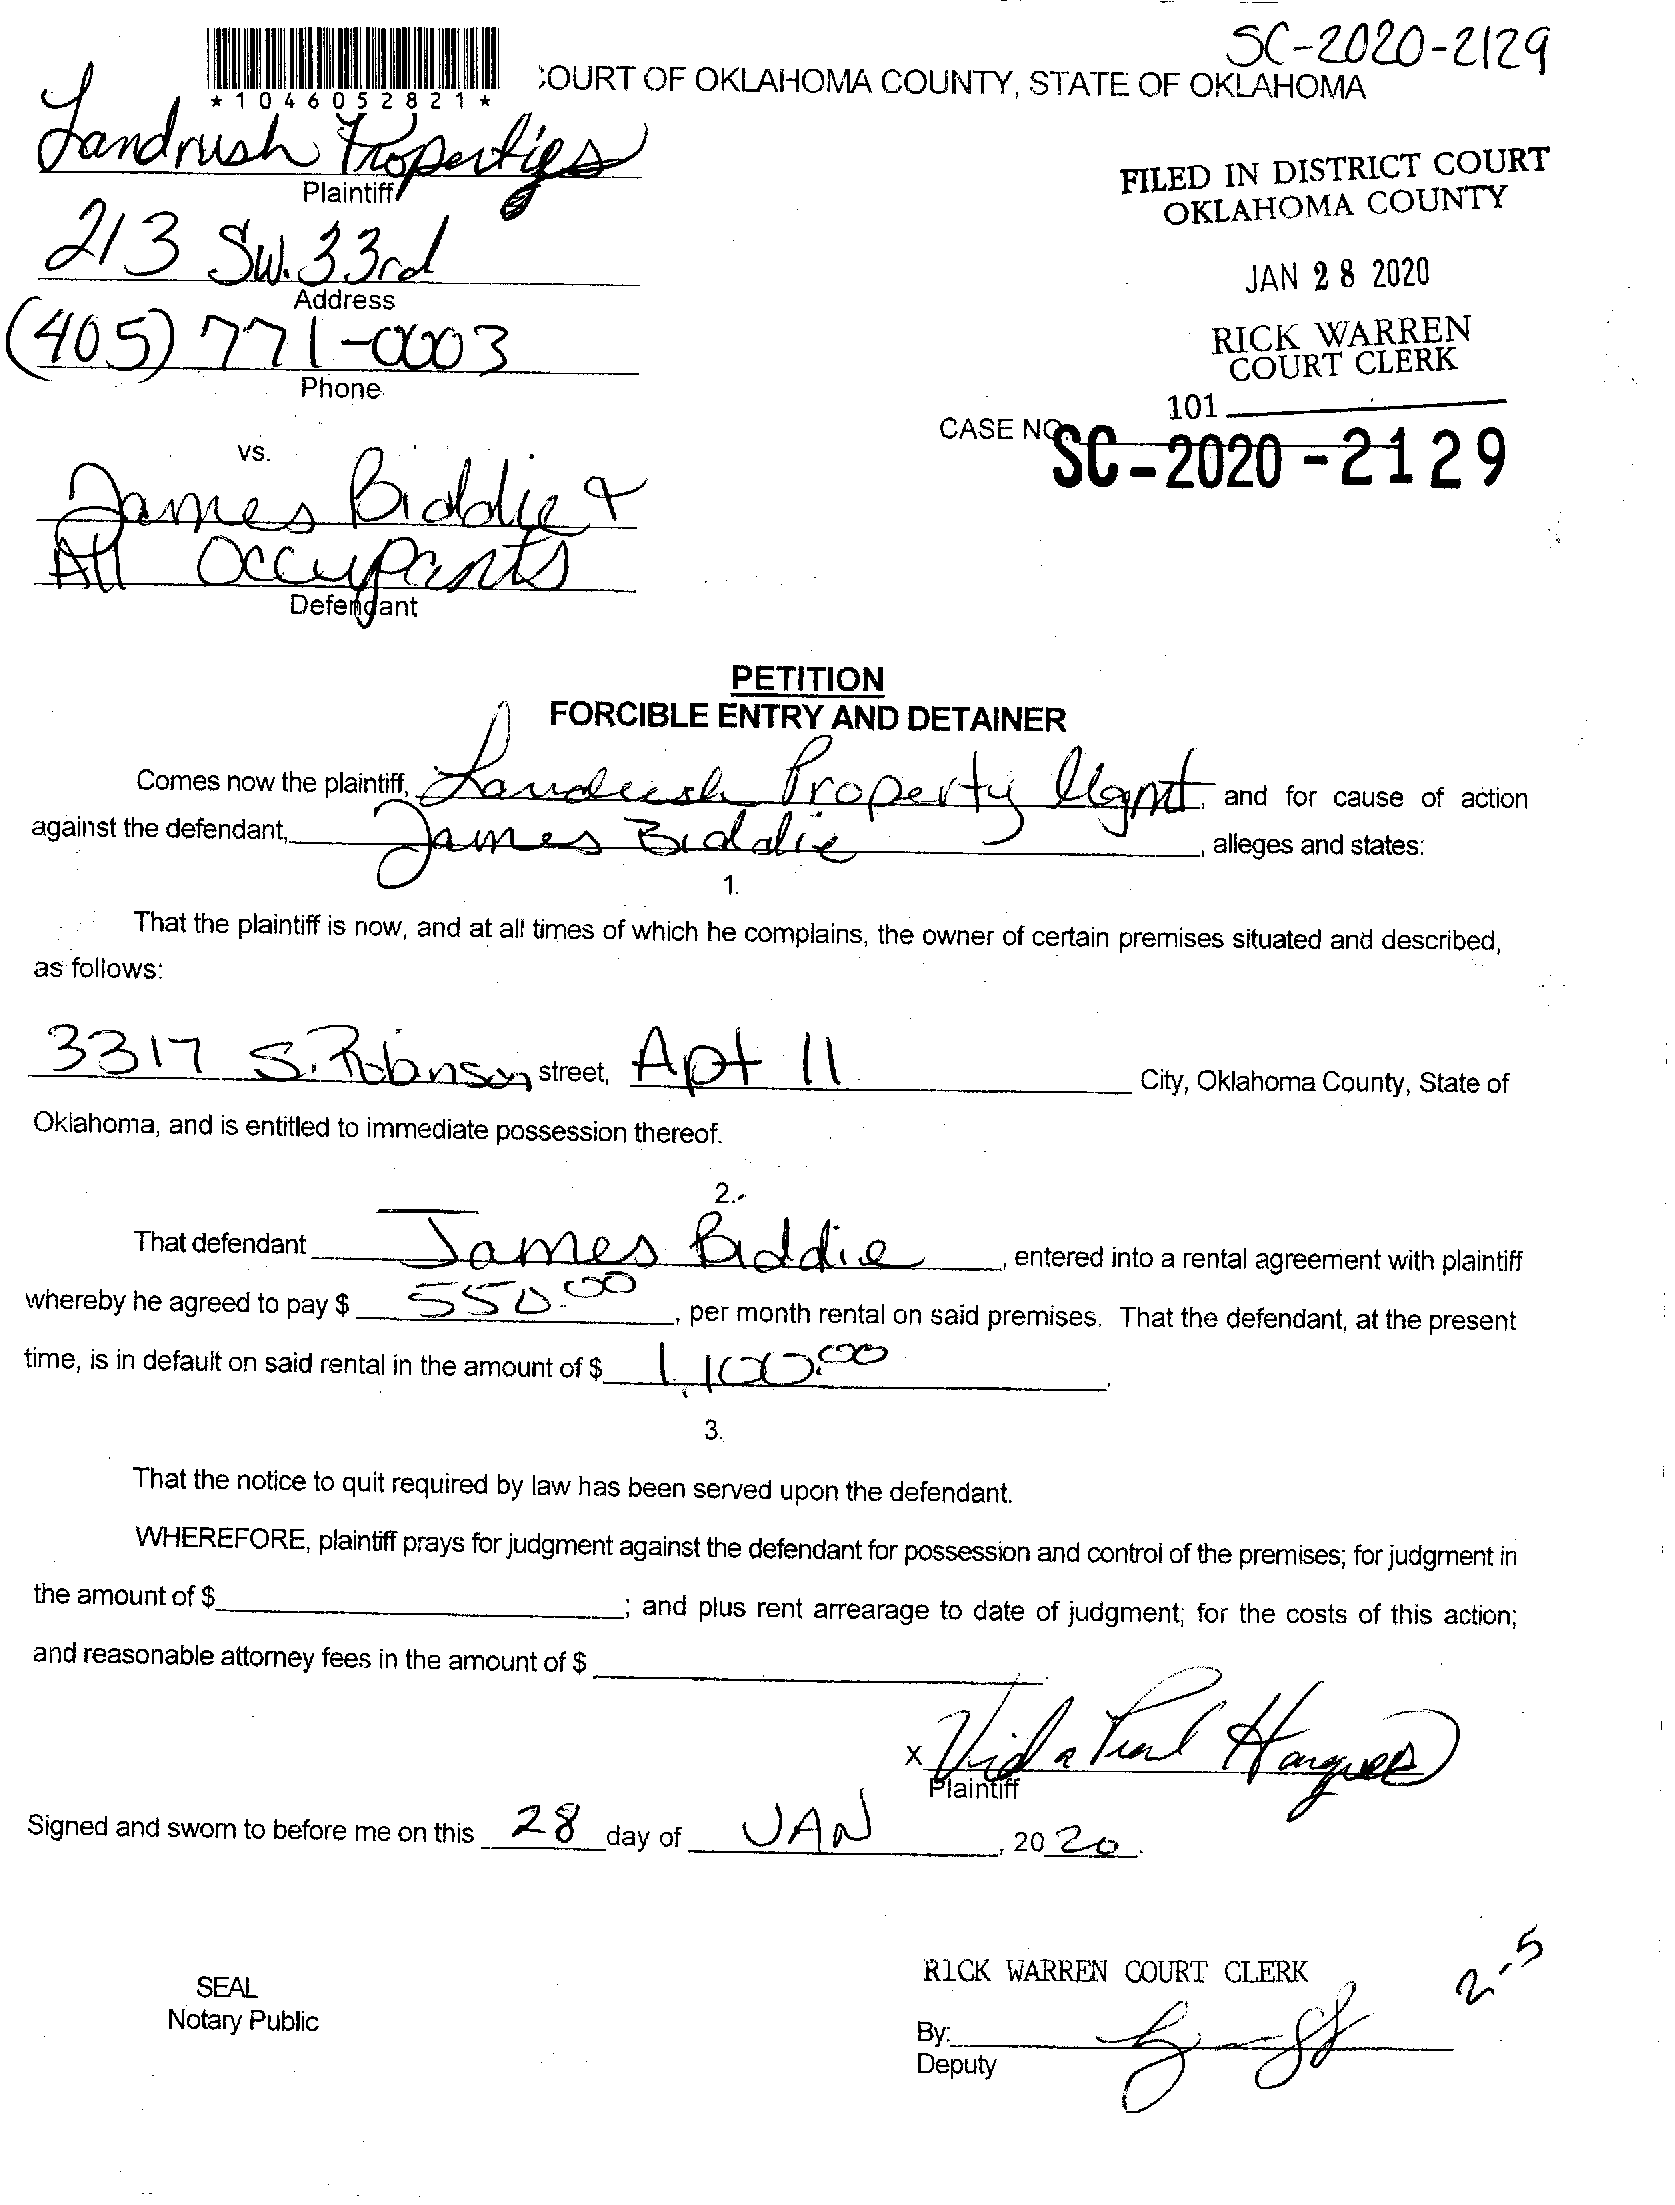 SC-2020-2129
*1046052821*
COURT OF OKLAHOMA COUNTY, STATE OF OKLAHOMA
Landrush Properties
Plaintiff
213 SW. 33rd
Address
(405) 771-0003
Phone
FILED IN DISTRICT COURT
OKLAHOMA COUNTY
JAN 28 2020
RICK WARREN
COURT CLERK
101
CASE NO. SC-2020-2129
vs.
James Biddie &
All Occupants
Defendant
PETITION
FORCIBLE ENTRY AND DETAINER
Comes now the plaintiff, Landrush Property Mgmt, and for cause of action
against the defendant, James Biddie, alleges and states:
1.
That the plaintiff is now, and at all times of which he complains, the owner of certain premises situated and described,
as follows:
3317 S. Robinson street, Apt 11 City, Oklahoma County, State of
Oklahoma, and is entitled to immediate possession thereof.
2.
That defendant James Biddie, entered into a rental agreement with plaintiff
whereby he agreed to pay $ 550.00, per month rental on said premises. That the defendant, at the present
time, is in default on said rental in the amount of $ 1,100.00.
3.
That the notice to quit required by law has been served upon the defendant.
WHEREFORE, plaintiff prays for judgment against the defendant for possession and control of the premises; for judgment in
the amount of $ ; and plus rent arrearage to date of judgment; for the costs of this action;
and reasonable attorney fees in the amount of $
X
Plaintiff
Signed and sworn to before me on this 28 day of JAN, 2020.
RICK WARREN COURT CLERK
2-5
SEAL
Notary Public
By:
Deputy